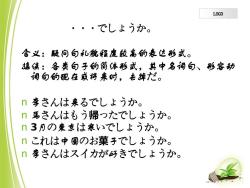 LOGO
・・・でしょうか。
含义：疑问句礼貌程度较高的表达形式。
接续：各类句子的简体形式，其中名词句、形容动
词句的现在或将来时，去掉だ。
n 李さんは来るでしょうか。
n 馬さんはもう帰ったでしょうか。
n 3月の東京は寒いでしょうか。
n これは中国のお菓子でしょうか。
n 李さんはスイカが好きでしょうか。